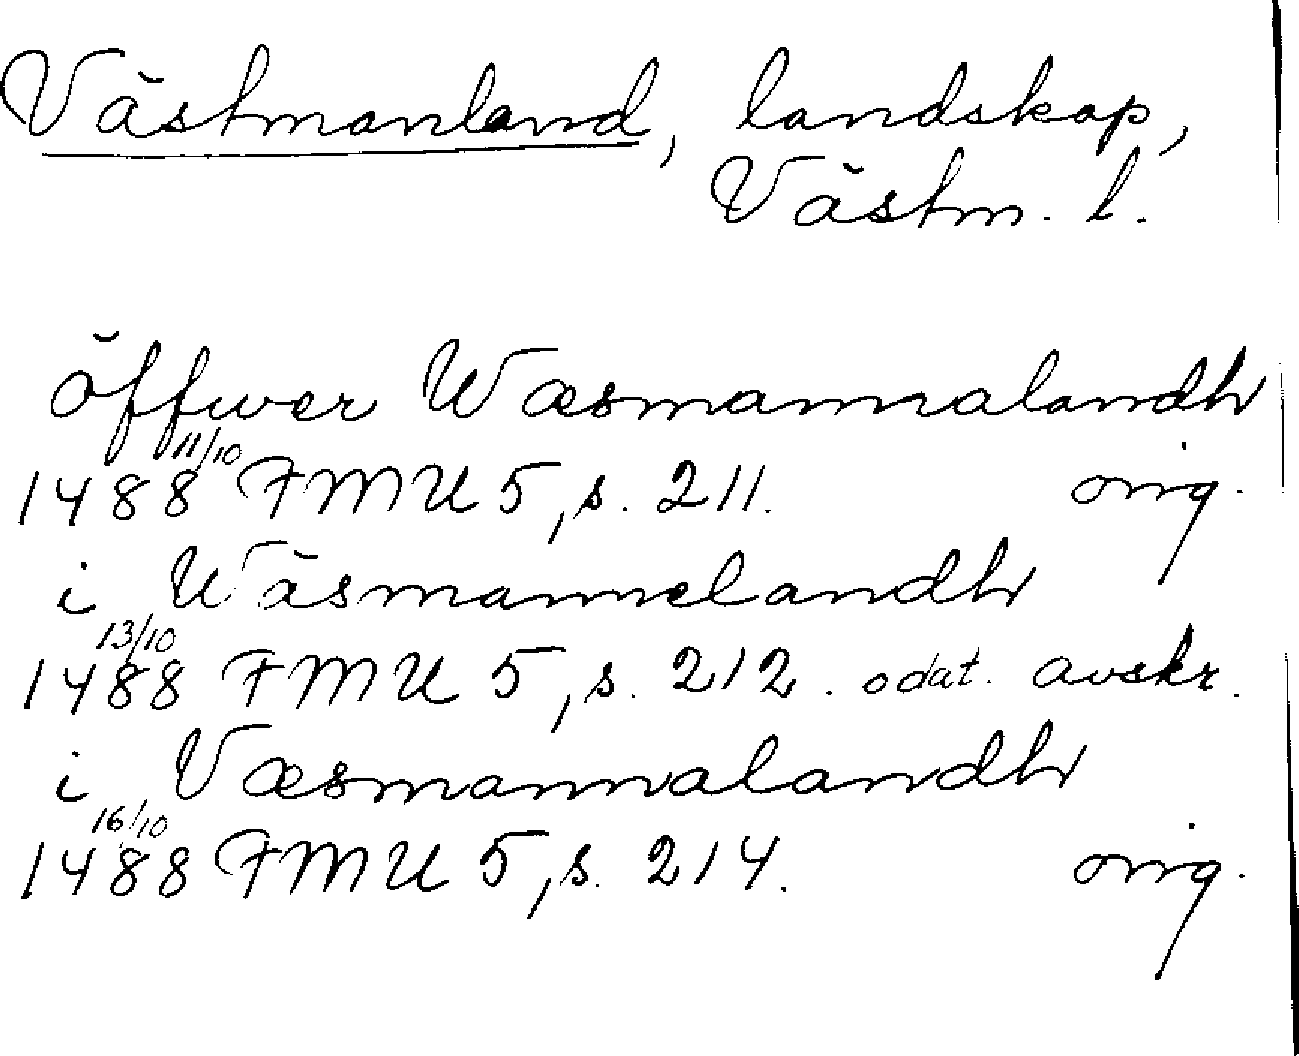 Västmanland, landskap,
Västm. l.
öffwer Wæsmannalandh
1488 11/10 FMU 5, s. 211. orig.
i Wäsmannelandh
1488 13/10 FMU 5, s. 212. odat. avskr.
i Væsmannalandh
1488 16/10 FMU 5, s. 214. orig.